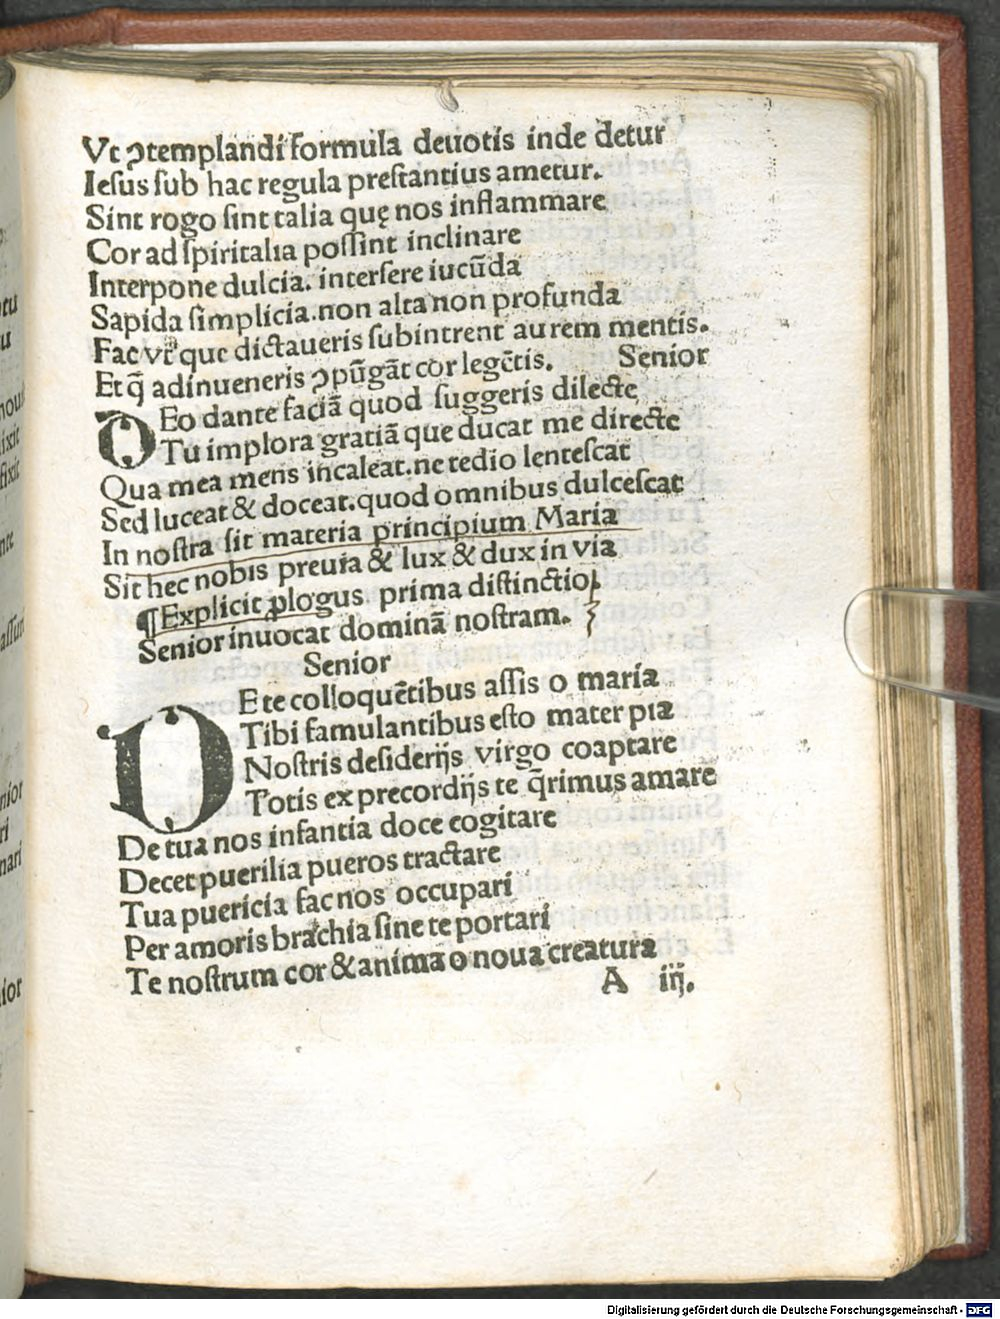 Vt ꝯtemplandi formula deuotis inde detur
Iesus sub hac regula prestantius ametur.
Sint rogo sint talia quę nos inflammare
Cor ad spiritalia possint inclinare
Interpone dulcia. intersere iucūda
Sapida simplicia.non alta non profunda
Fac vt que dictaueris subintrent aurem mentis.
Et q̄ adinueneris ꝯpūgāt cor legētis. Senior
DEo dante faciā quod suggeris dilecte
Tu implora gratiā que ducat me directe
Qua mea mens incaleat.ne tedio lentescat
Sed luceat & doceat.quod omnibus dulcescat
In nostra sit materia principium Maria
Sit hec nobis preuia & lux & dux in via
¶Explicit ꝓlogus. prima distinctio
Senior inuocat dominā nostram.
Senior
DE te colloquētibus assis o maria
Tibi famulantibus esto mater pia
Nostris desiderijs virgo coaptare
Totis ex precordijs te q̄rimus amare
De tua nos infantia doce cogitare
Decet puerilia pueros tractare
Tua puericia fac nos occupari
Per amoris brachia sine te portari
Te nostrum cor & anima o noua creatura
A iij.
Digitalisierung gefördert durch die Deutsche Forschungsgemeinschaft - DFG